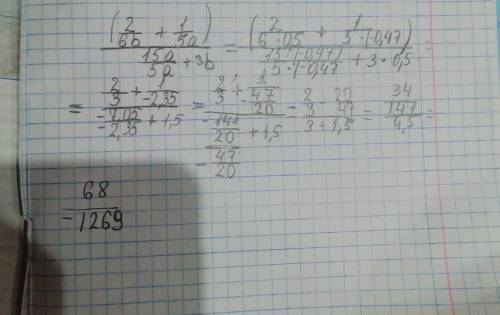 (2/6b + 1/5a) / (15a/5a + 3b) = (2/(6·0,5) + 1/(5·(-0,47))) / (15·(-0,47)/(5·(-0,47)) + 3·0,5) =
= (2/3 + 1/-2,35) / (-7,05/-2,35 + 1,5) = (2/3 + 1/(-47/20)) / ((-141/20)/(-47/20) + 1,5) = (2/3 - 20/47) / (3 + 1,5) = (34/141) / 4,5 =
68 / -1269